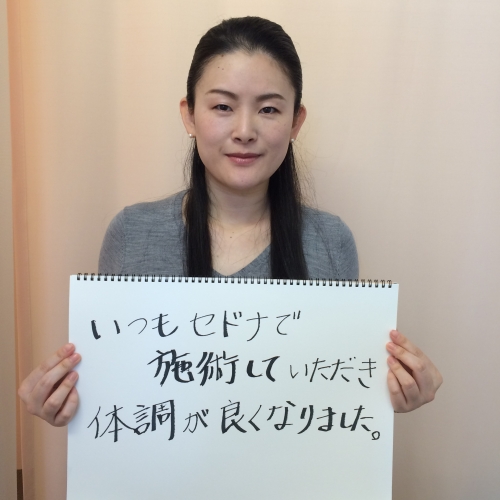 いつもセドナで
施術していただき
体調が良くなりました。